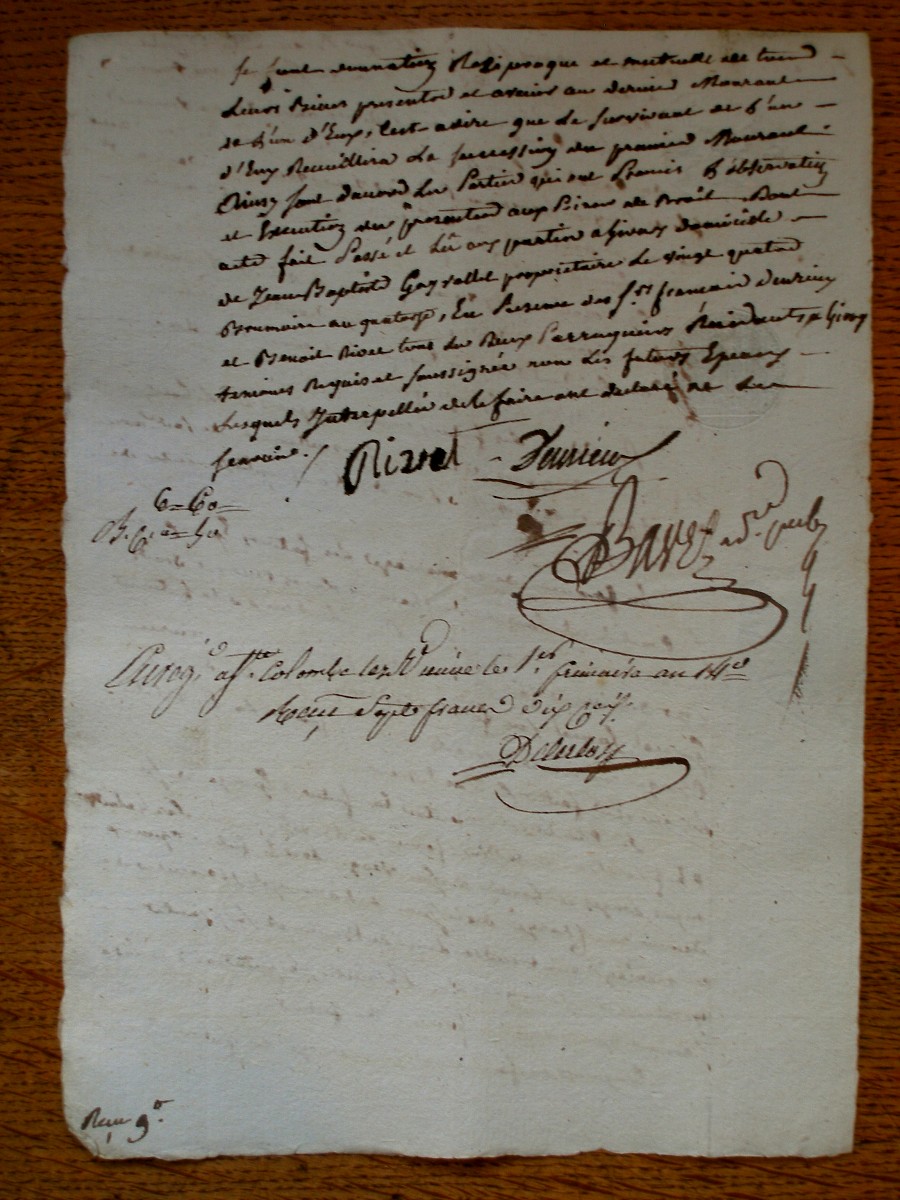 se font donnation Reciproque et mutuelle de tous
Leurs Biens presents et avenir au dernier Mourant
de L'un d'Eux, C'est adire que Le Survivant de L'un
d'Eux Recueillira La succession du premier Mourant
Ainsy sont d'acord Les Parties qui ont Promis L'observation
et Execution des presentes aux Peines de Droit Dont
acte fait Passé et Lû aux parties a Givors domicille
de Jean Baptiste Gayvallet propriétaire Le vingt quatre
Brumaire an quatorze, En Presence des Srs français Deurieu
et Benoit Rivat tous les deux Perruquiers Residants a Givors
temoins Requis et soussignés non Les futurs Epoux
Lesquels Interpellés de le faire ont declaré ne Le
scavoir. /
Rivat Deurieu
not. pub.
Enreg. a Ste Colombe lez Vienne le 1er frimaire an 14
Reçu Sept francs dix
Reçu 9